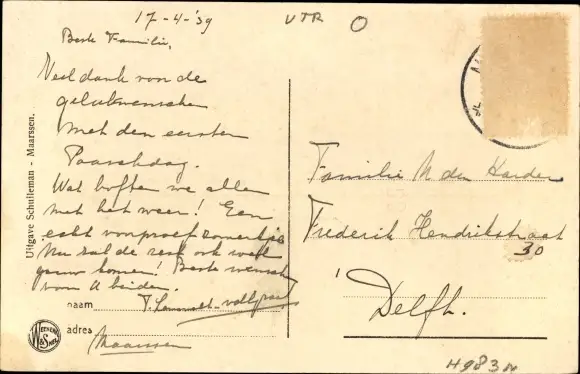 17-4-'39
UTR
O
Beste Familie,
Veel dank voor de
gelukwenschen
met den eersten
Paaschdag.
Wat boften we allen
met het weer! Een
echt voorproef zomertje
Nu zal de rest ook wel
gauw komen! Beste wensch
van U beiden.
naam
adres
Maarssen
Uitgave Schulieman - Maarssen.
WEENENK & SNEL
Familie M den Harder
Frederik Hendrikstraat
30
Delft.